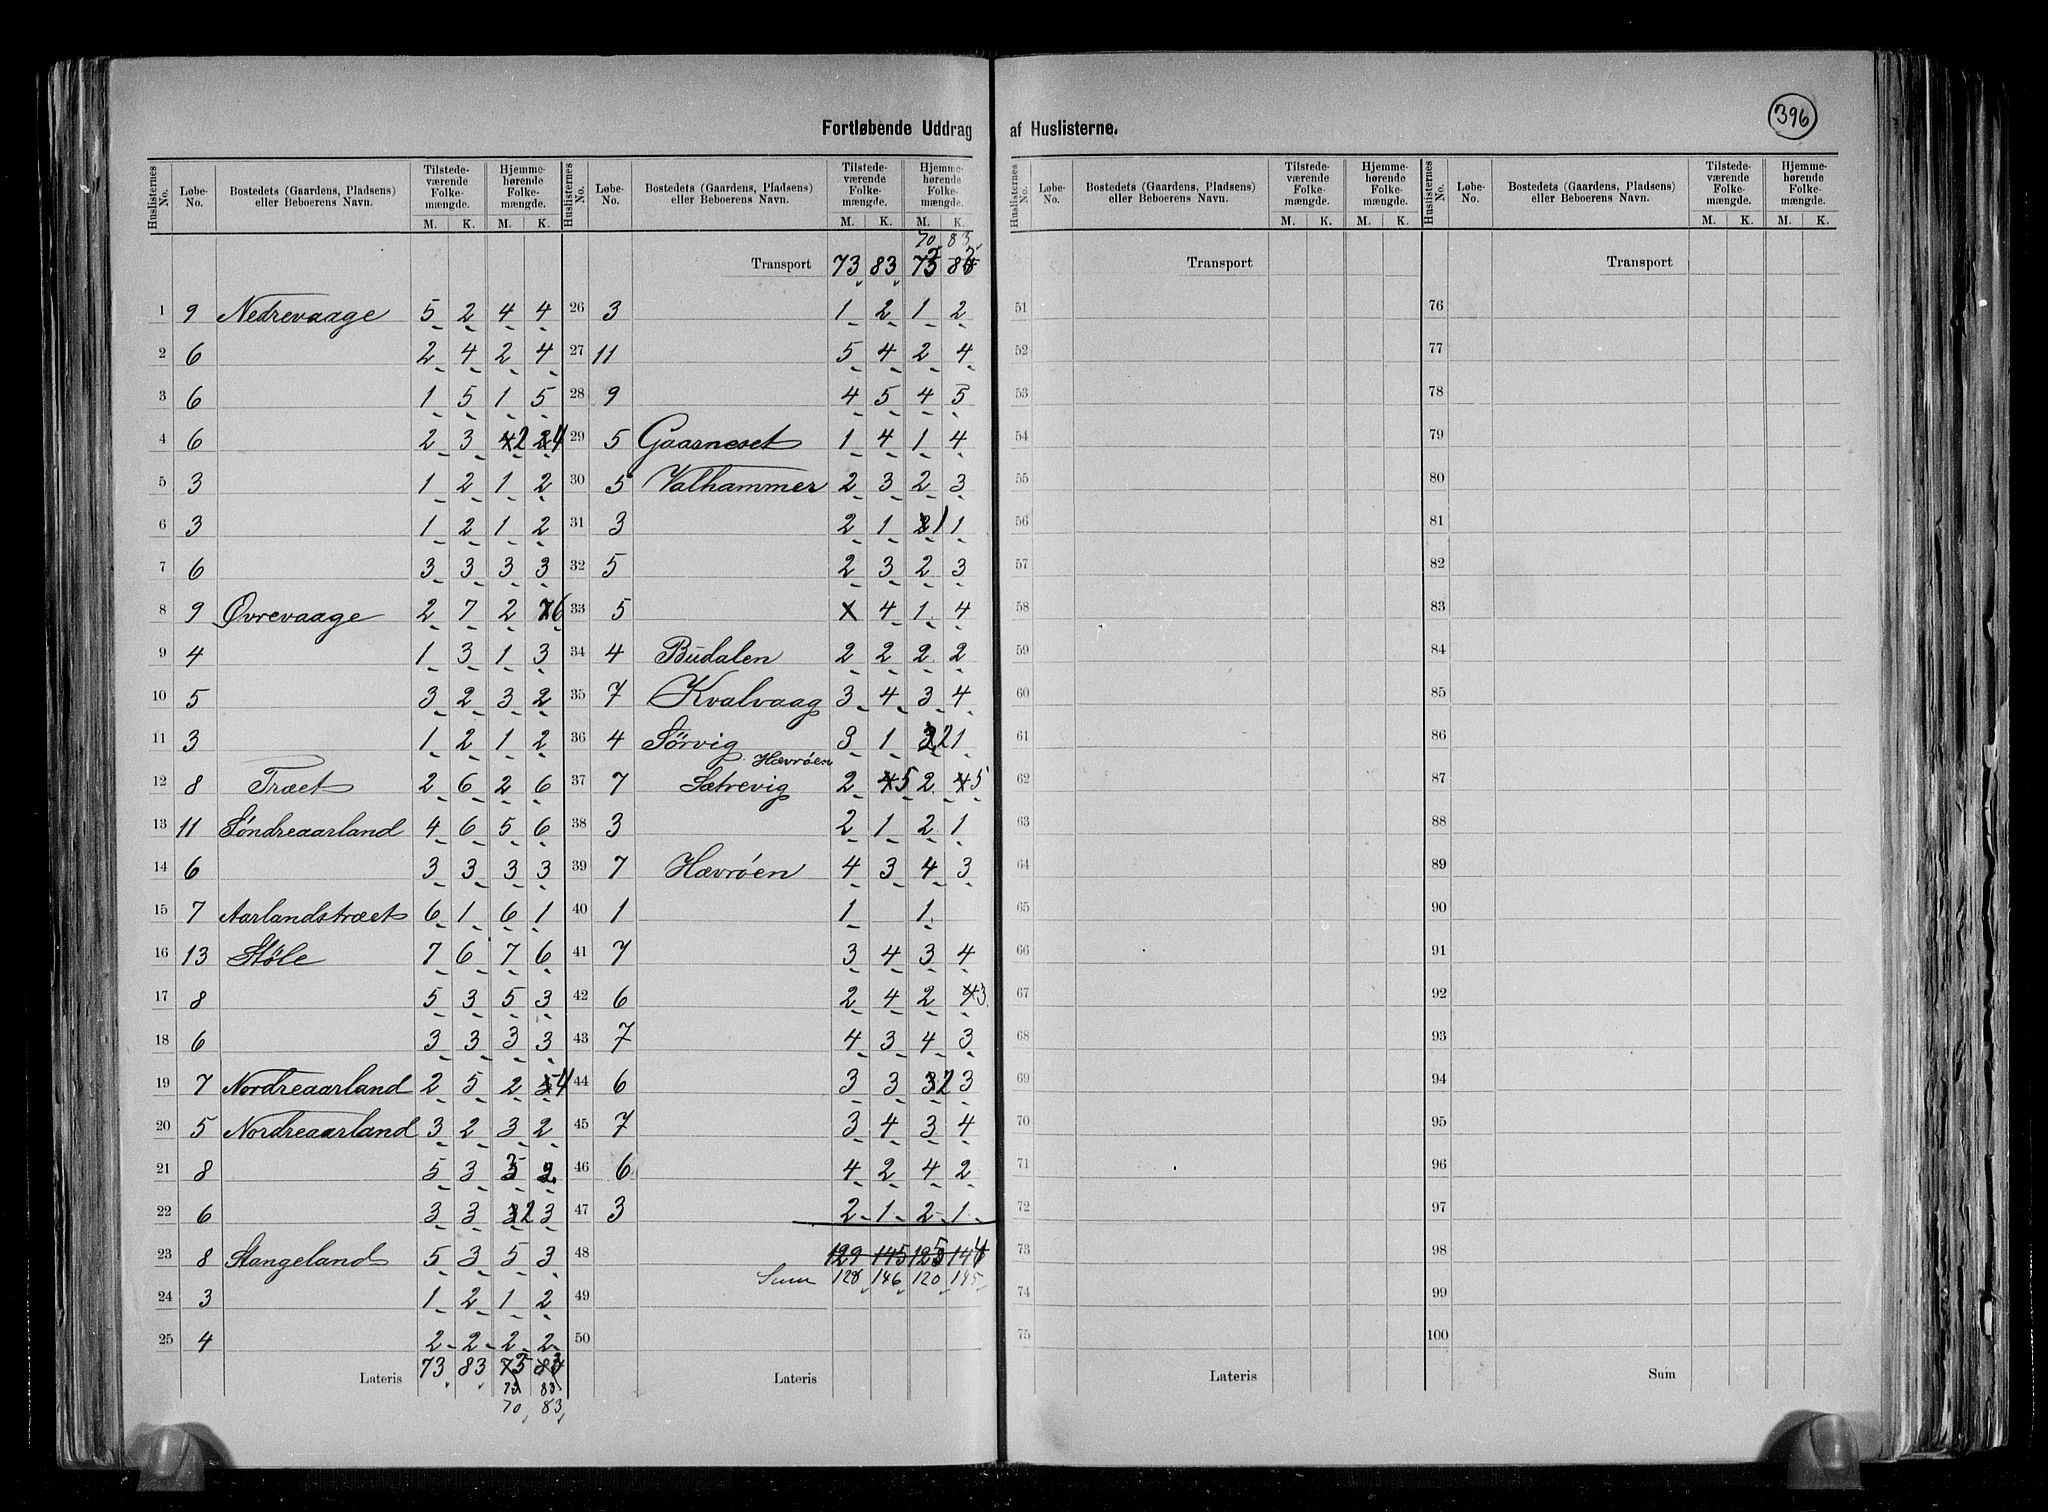 396
Fortløbende Uddrag af Huslisterne.
Huslisternes No. Løbe-No. Bostedets (Gaardens, Pladsens) eller Beboerens Navn. Tilstedeværende Folkemængde. M. K. Hjemmehørende Folkemængde. M. K.
1 9 Nedrevaage 5 2 4 4
2 6 2 4 2 4
3 6 1 5 1 5
4 6 2 3 2 4
5 3 1 2 1 2
6 3 1 2 1 2
7 6 3 3 3 3
8 9 Øvrevaage 2 7 2 6
9 4 1 3 1 3
10 5 3 2 3 2
11 3 1 2 1 2
12 8 Træet 2 6 2 6
13 11 Søndreaarland 4 6 5 6
14 6 3 3 3 3
15 7 Aarlandstræet 6 1 6 1
16 13 Støle 7 6 7 6
17 8 5 3 5 3
18 6 3 3 3 3
19 7 Nordreaarland 2 5 2 4
20 5 Nordreaarland 3 2 3 2
21 8 5 3 3 2
22 6 3 3 2 3
23 8 Stangeland 5 3 5 3
24 3 1 2 1 2
25 4 2 2 2 2
Lateris 73 83
73 83
70 83
Huslisternes No. Løbe-No. Bostedets (Gaardens, Pladsens) eller Beboerens Navn. Tilstedeværende Folkemængde. M. K. Hjemmehørende Folkemængde. M. K.
70 83
Transport 73 83
26 3 1 2 1 2
27 11 5 4 2 4
28 9 4 5 4 5
29 5 Gaarneset 1 4 1 4
30 5 Valhammer 2 3 2 3
31 3 2 1 1 1
32 5 2 3 2 3
33 5 4 1 4
34 4 Budalen 2 2 2 2
35 7 Kvalvaag 3 4 3 4
36 4 Sørvig 3 1 2 1
Hævrøen
37 7 Sætrevig 2 5 2 5
38 3 2 1 2 1
39 7 Hævrøen 4 3 4 3
40 1 1 1
41 7 3 4 3 4
42 6 2 4 2 3
43 7 4 3 4 3
44 6 3 3 2 3
45 7 3 4 3 4
46 6 4 2 4 2
47 3 2 1 2 1
48 129 145 125 144
Sum 128 146 120 145
49
50
Lateris
Huslisternes No. Løbe-No. Bostedets (Gaardens, Pladsens) eller Beboerens Navn. Tilstedeværende Folkemængde. M. K. Hjemmehørende Folkemængde. M. K.
Transport
51
52
53
54
55
56
57
58
59
60
61
62
63
64
65
66
67
68
69
70
71
72
73
74
75
Lateris
Huslisternes No. Løbe-No. Bostedets (Gaardens, Pladsens) eller Beboerens Navn. Tilstedeværende Folkemængde. M. K. Hjemmehørende Folkemængde. M. K.
Transport
76
77
78
79
80
81
82
83
84
85
86
87
88
89
90
91
92
93
94
95
96
97
98
99
100
Sum